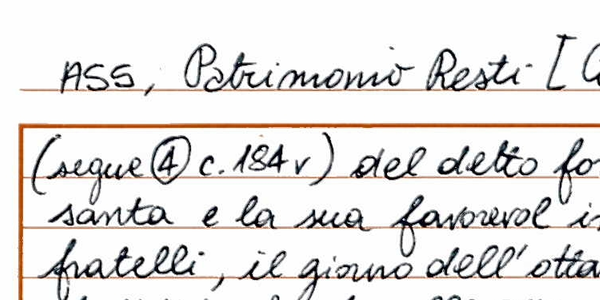 ASS, Patrimonio Resti [
(segue ④ c. 184 v) del detto fo
santa e la sua favorevol i
fratelli, il giorno dell'otta